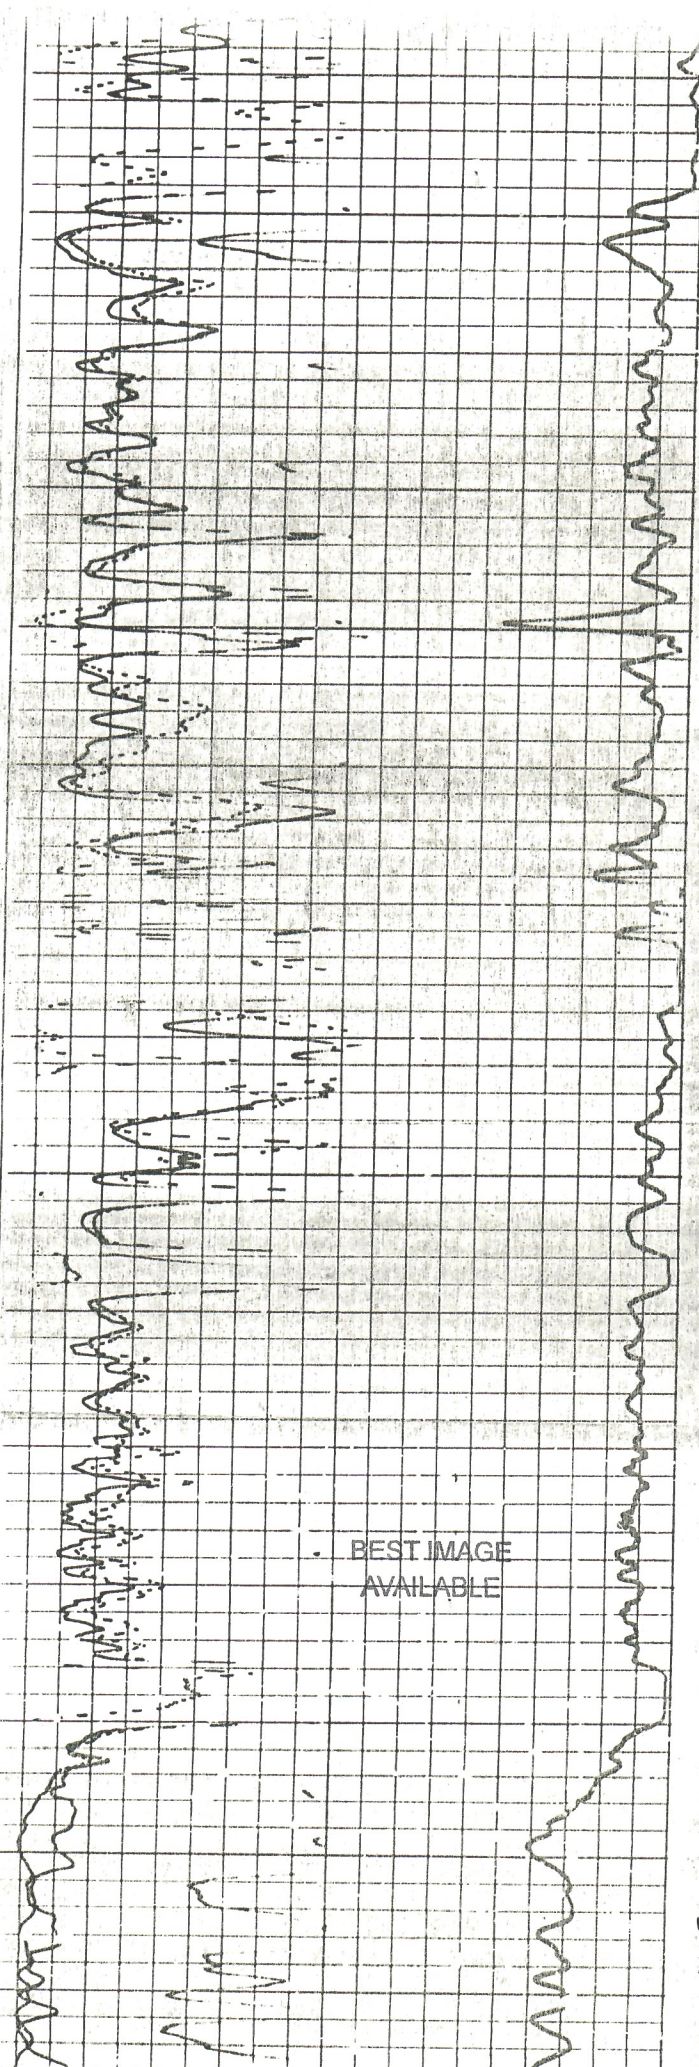 BEST IMAGE
AVAILABLE